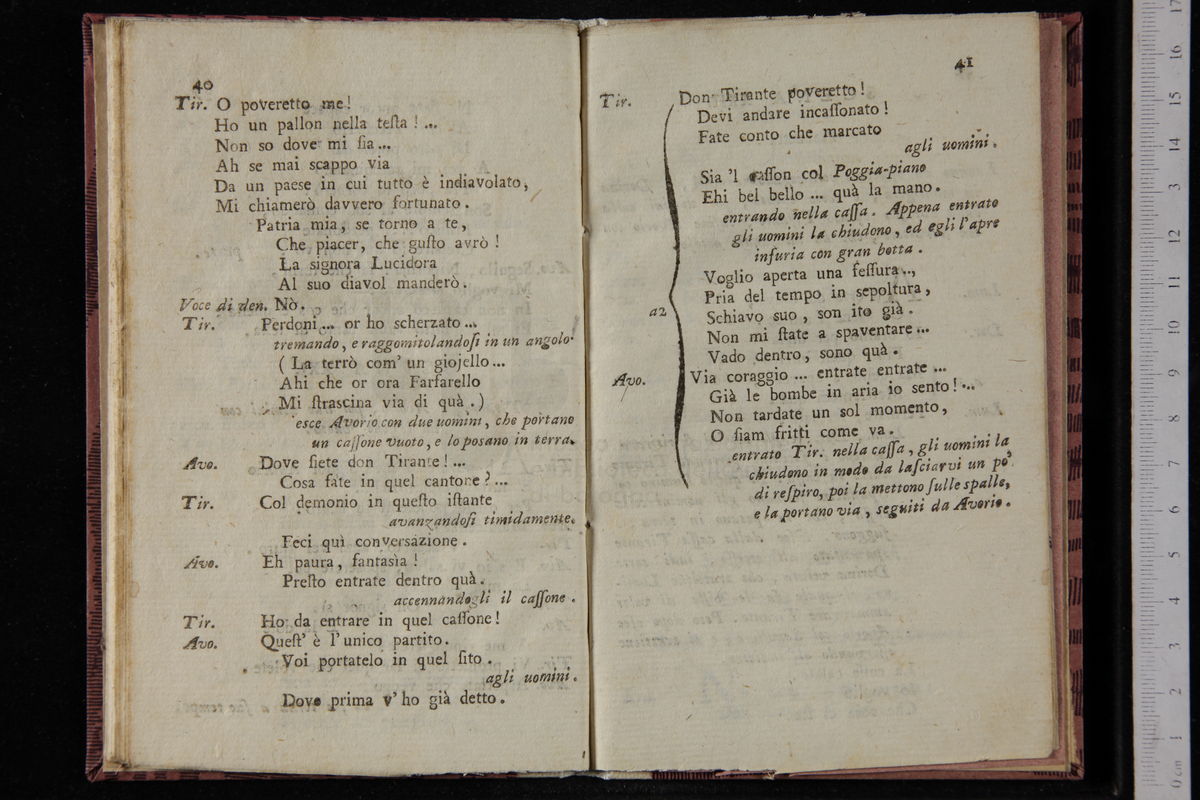 40
Tir. O poveretto me!
Ho un pallon nella teſta! ...
Non so dove mi ſia ...
Ah se mai scappo via
Da un paese in cui tutto è indiavolato,
Mi chiamerò davvero fortunato.
Patria mia, se torno a te,
Che piacer, che guſto avrò!
La signora Lucidora
Al suo diavol manderò.
Voce di den. Nò.
Tir. Perdoni ... or ho scherzato ...
tremando, e raggomitolandoſi in un angolo.
( La terrò com' un giojello ...
Ahi che or ora Farfarello
Mi ſtrascina via di quà. )
esce Avorio con due uomini, che portano
un caſſone vuoto, e lo poſano in terra.
Avo. Dove ſiete don Tirante! ...
Cosa fate in quel cantone? ...
Tir. Col demonio in queſto iſtante
avanzandoſi timidamente.
Feci quì conversazione.
Avo. Eh paura, fantasìa!
Preſto entrate dentro quà.
accennandogli il caſſone.
Tir. Ho da entrare in quel caſſone!
Avo. Queſt' è l'unico partito.
Voi portatelo in quel ſito.
agli uomini.
Dove prima v' ho già detto.
41
Tir. Don Tirante poveretto!
Devi andare incaſſonato!
Fate conto che marcato
agli uomini.
Sia 'l caſſon col Poggia-piano
Ehi bel bello ... quà la mano.
entrando nella caſſa. Appena entrato
gli uomini la chiudono, ed egli l'apre
infuria con gran botta.
Voglio aperta una feſſura..,
Pria del tempo in sepoltura,
a2 Schiavo suo, son ito già.
Non mi ſtate a spaventare ...
Vado dentro, sono quà.
Avo. Via coraggio ... entrate entrate ...
Già le bombe in aria io sento! ...
Non tardate un sol momento,
O ſiam fritti come va.
entrato Tir. nella caſſa, gli uomini la
chiudono in modo da laſciarvi un po'
di reſpiro, poi la mettono ſulle spalle,
e la portano via, seguiti da Avorio.